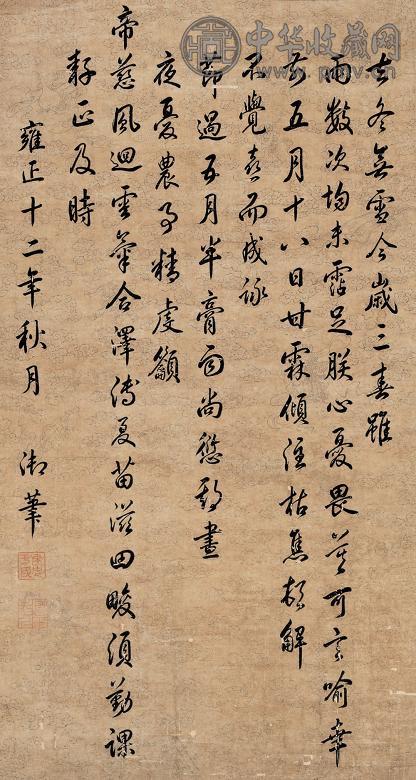 中华收藏网
去冬無雪今歲三春雖
雨數次均未霑足朕心憂畏莫可言喻幸
於五月十八日甘霖傾注枯焦頓解
不覺喜而成詠
節過五月半膏雨尚愆期晝
夜憂農事精虔籲
帝慈風迴雲氣合澤溥夏苗滋田畯須勤課
正及時
雍正十二年秋月 御筆